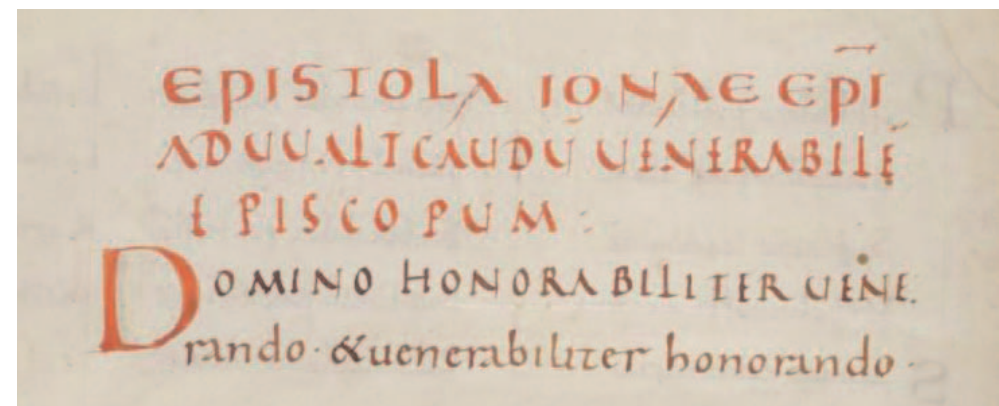 EPISTOLA IONAE EP̄I
AD UUALTCAUDŪ UENERABILĒ
EPISCOPUM:
DOMINO HONORABILITER UENE.
rando · &uenerabiliter honorando ·